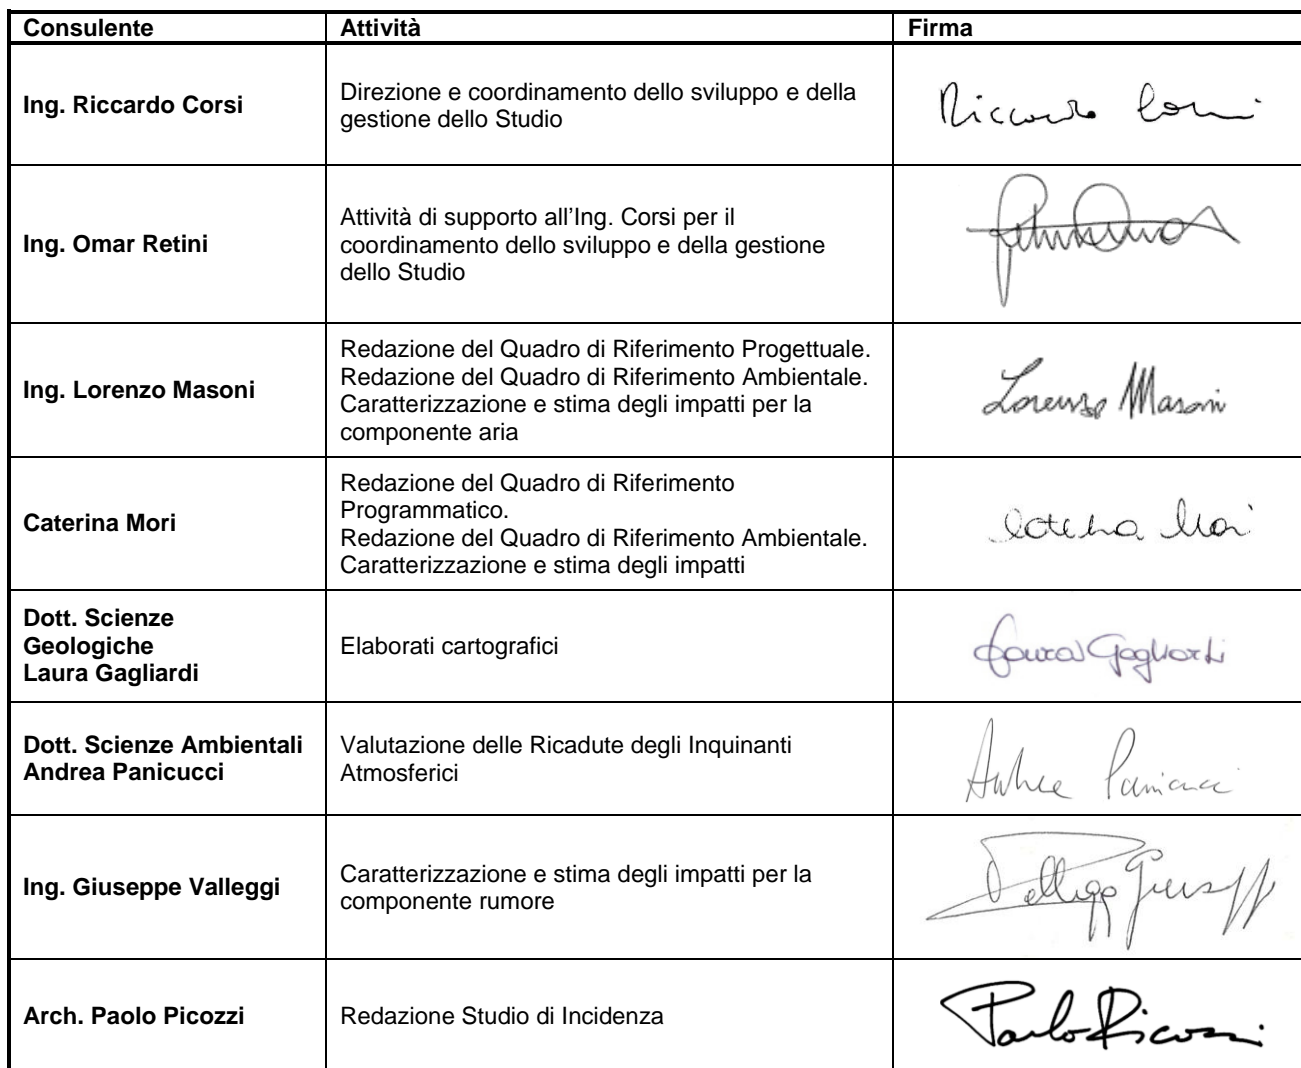 Consulente Attività Firma
Ing. Riccardo Corsi
Direzione e coordinamento dello sviluppo e della
gestione dello Studio
Riccardo Corsi
Ing. Omar Retini
Attività di supporto all'Ing. Corsi per il
coordinamento dello sviluppo e della gestione
dello Studio
Ing. Lorenzo Masoni
Redazione del Quadro di Riferimento Progettuale.
Redazione del Quadro di Riferimento Ambientale.
Caratterizzazione e stima degli impatti per la
componente aria
Lorenzo Masoni
Caterina Mori
Redazione del Quadro di Riferimento
Programmatico.
Redazione del Quadro di Riferimento Ambientale.
Caratterizzazione e stima degli impatti
Caterina Mori
Dott. Scienze
Geologiche
Laura Gagliardi
Elaborati cartografici
Laura Gagliardi
Dott. Scienze Ambientali
Andrea Panicucci
Valutazione delle Ricadute degli Inquinanti
Atmosferici
Andrea Panicucci
Ing. Giuseppe Valleggi
Caratterizzazione e stima degli impatti per la
componente rumore
Valleggi Giuseppe
Arch. Paolo Picozzi
Redazione Studio di Incidenza
Paolo Picozzi